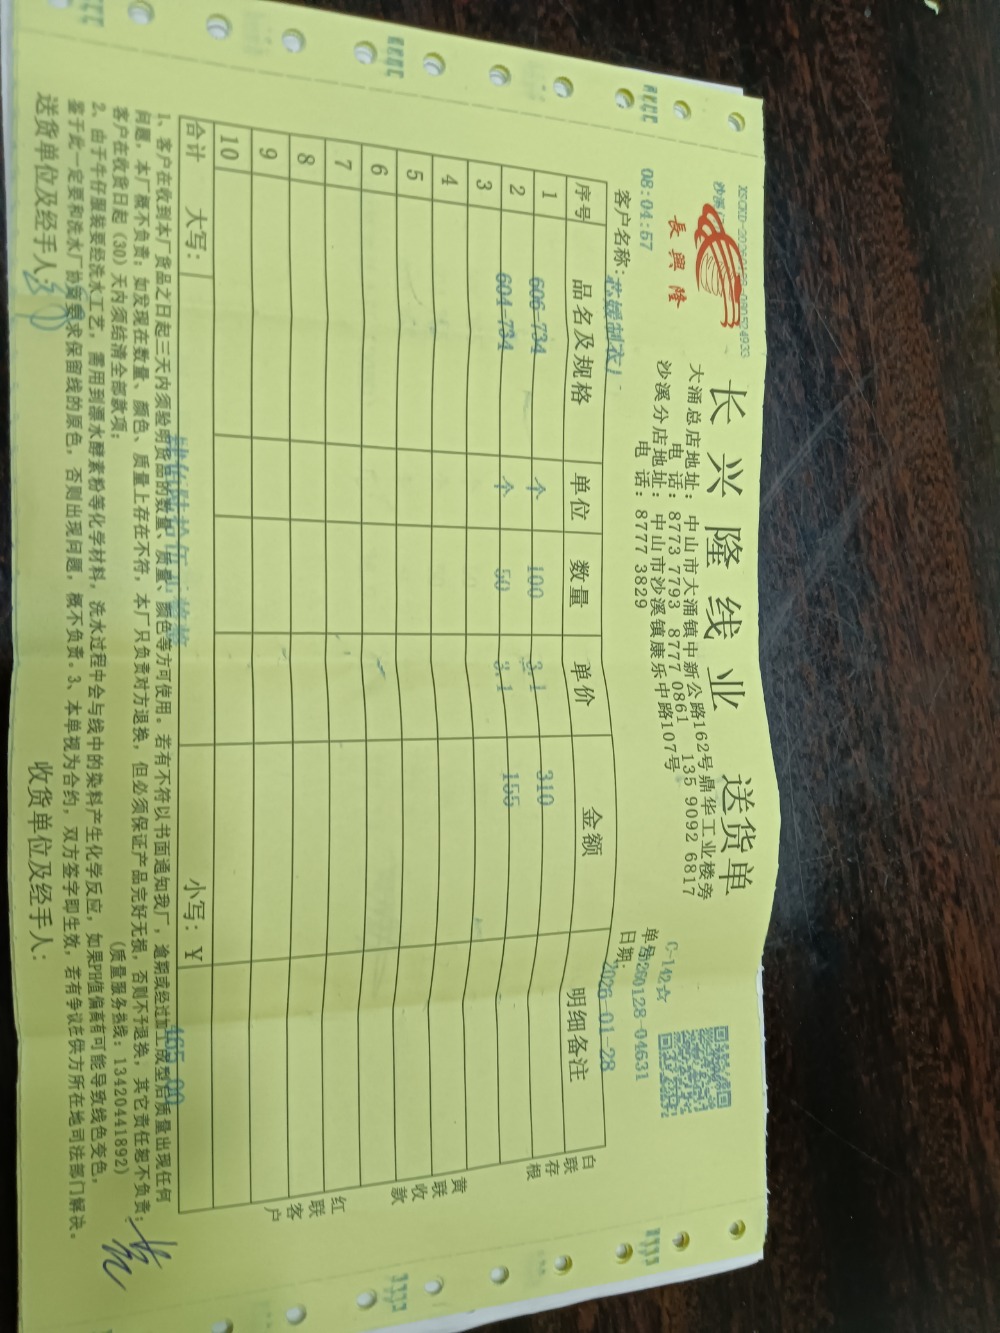 長興隆
长兴隆线业 送货单
大涌总店地址：中山市大涌镇中新公路162号鼎华工业楼旁
电 话：8773 7793 8777 0861 135 9092 6817
沙溪分店地址：中山市沙溪镇康乐中路107号
电 话：8777 3829
C-142☆
08:04:57
单号 260128-04631
客户名称：
日期：2026-01-28
序号 品名及规格 单位 数量 单价 金额 明细备注
1 606-734 个 100 3.1 310
2 604-734 个 50 3.1 155
3
4
5
6
7
8
9
10
合计 大写： 小写：￥ 465.00
白联存根
黄联收款
红联客户
1、客户在收到本厂货品之日起三天内须验明货品的数量、质量、颜色等方可使用。若有不符以书面通知我厂，逾期或经过加工成型后质量出现任何
问题，本厂概不负责；如发现在数量、颜色、质量上存在不符，本厂只负责对方退换，但必须保证产品完好无损，否则不予退换，其它责任恕不负责；
客户在收货日起（30）天内须结清全部款项； （质量服务热线：13420441892）
2、由于牛仔服装要经洗水工艺，需用到漂水酵素粉等化学材料，洗水过程中会与线中的染料产生化学反应，如果PH值偏高有可能导致线色变色，
鉴于此一定要和洗水厂协商要求保留线的原色，否则出现问题，概不负责。3、本单视为合约，双方签字即生效，若有争议在供方所在地司法部门解决。
送货单位及经手人： 收货单位及经手人：